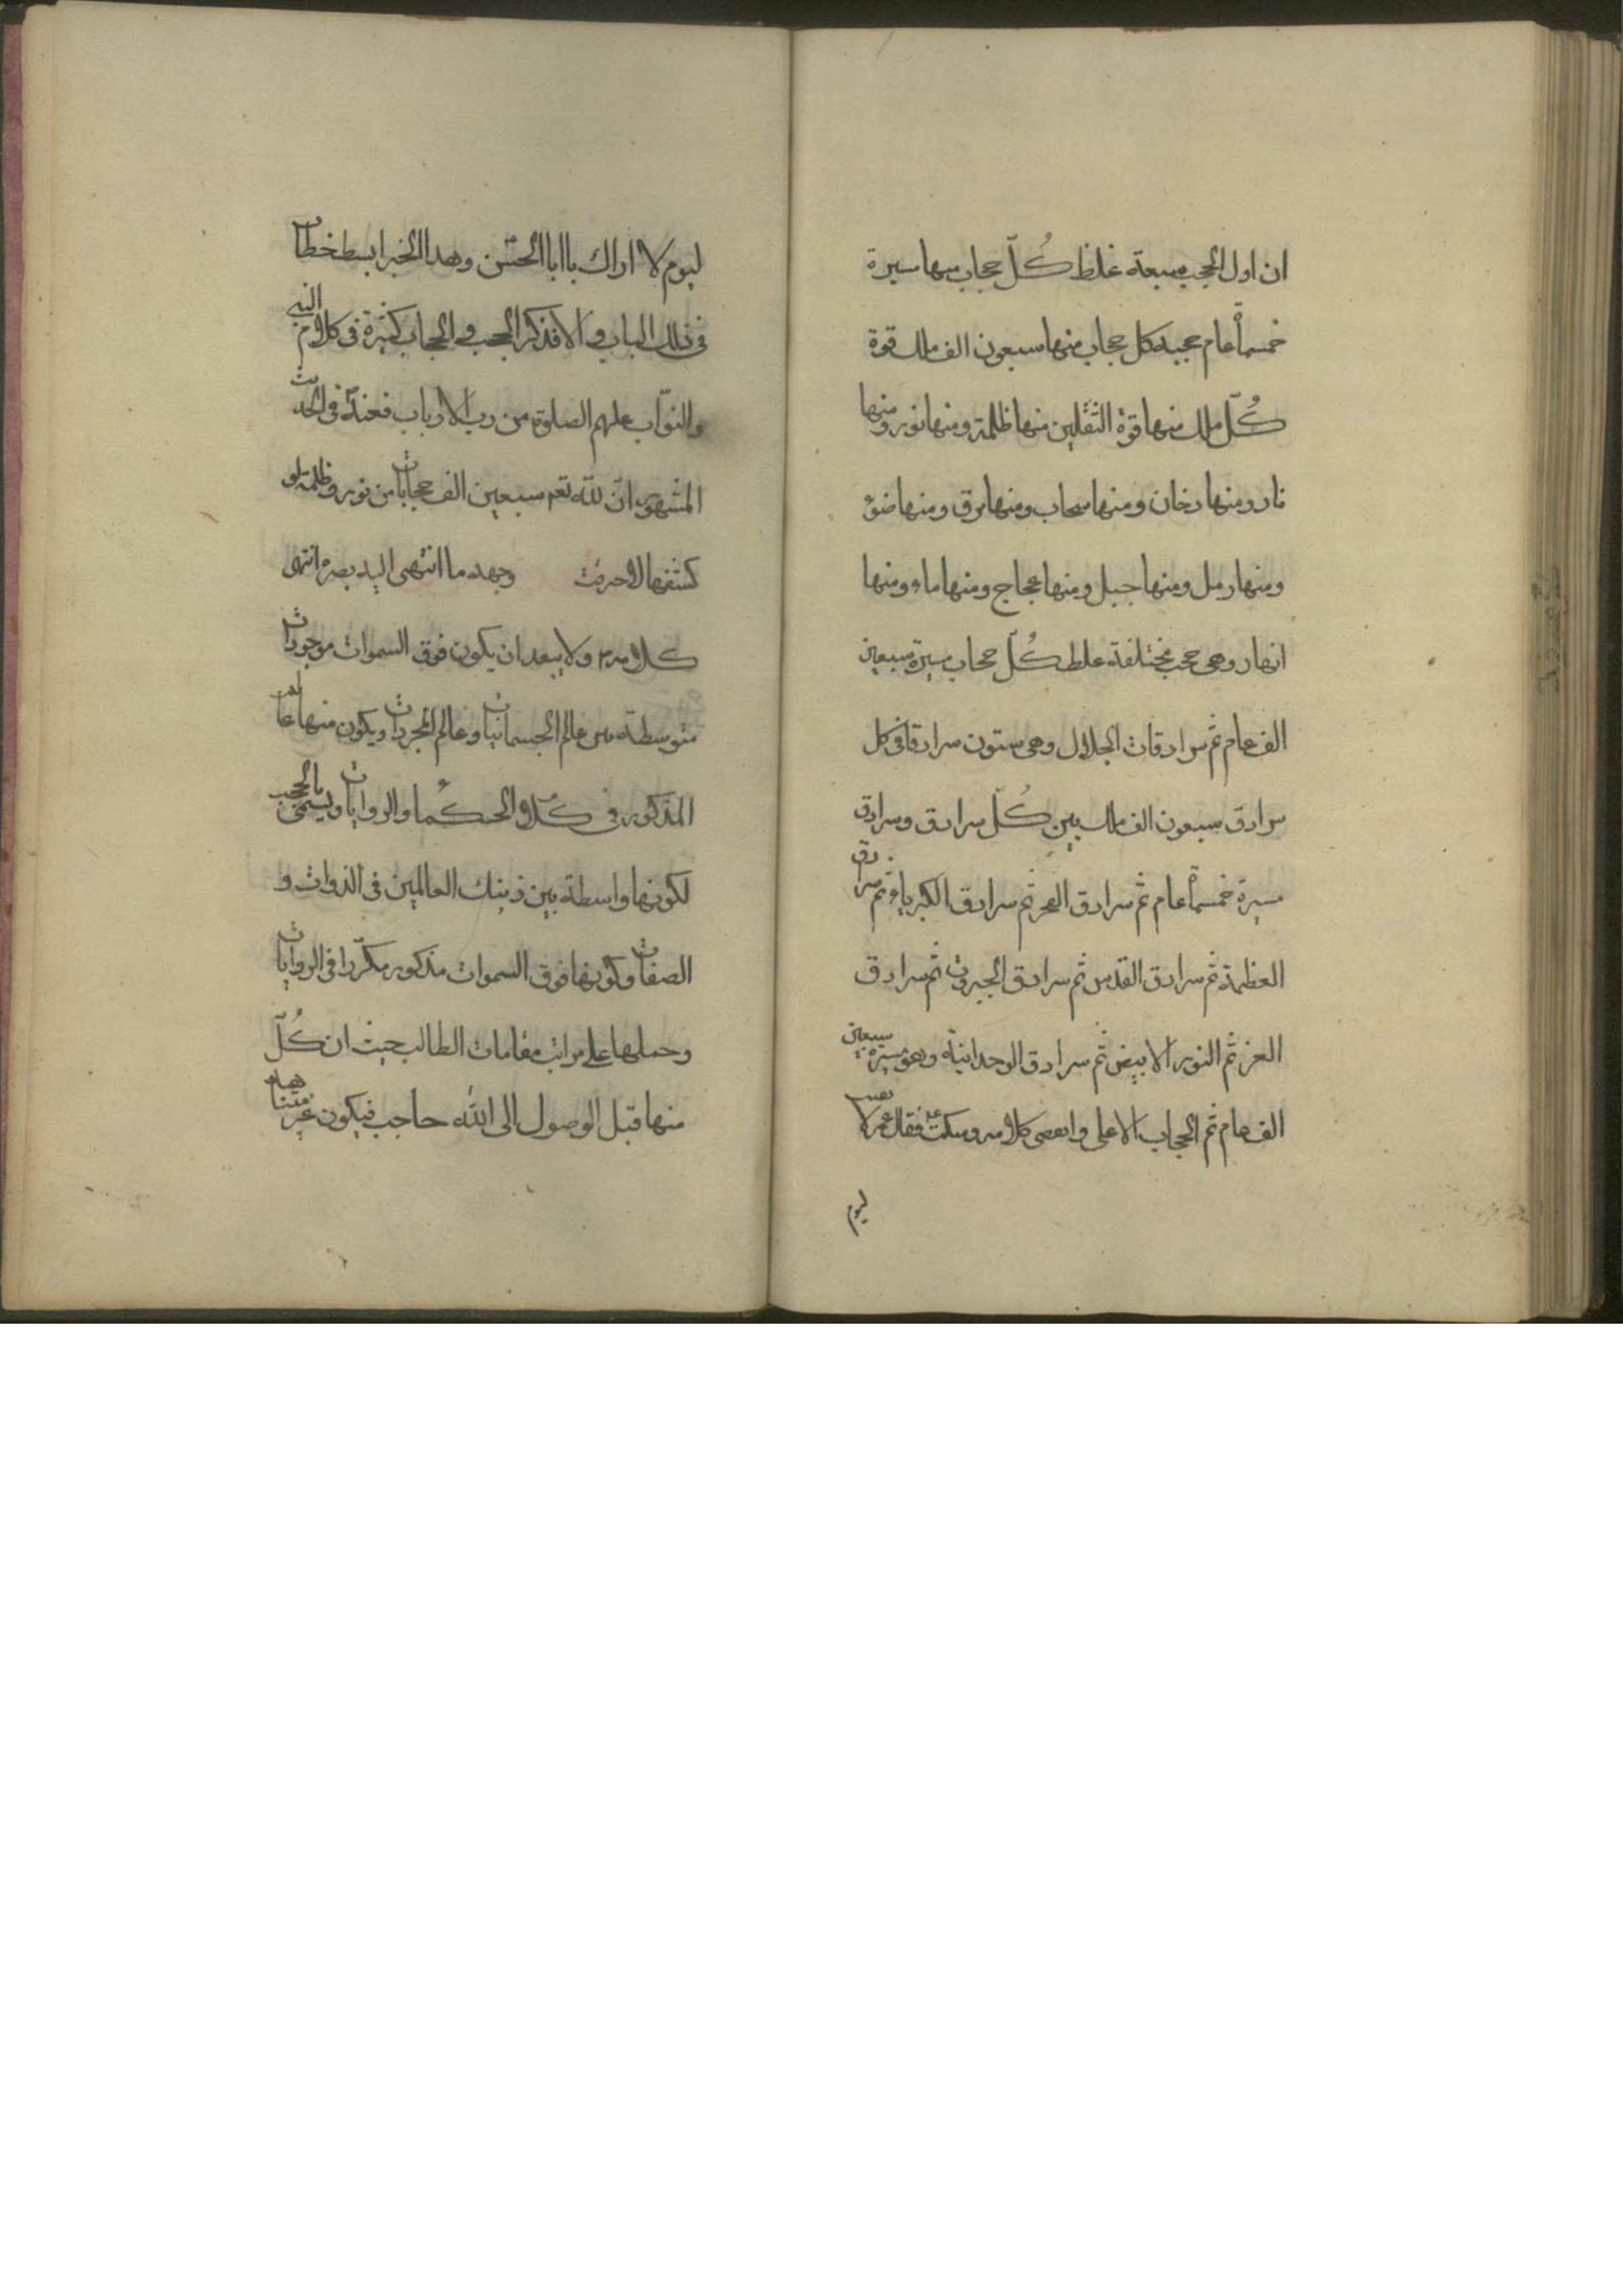 ان اول الحجب سبعة غلظ كُلّ حجاب منها سيرة
خمسمأة عام حجبه كل حجاب منها سبعون الف ملك قوة
كُلّ ملك منها قوة الثقلين منها ظلمة ومنها نور ومنها
نار ومنها دخان ومنها سحاب ومنها برق ومنها ضوء
ومنها رمل ومنها جبل ومنها عجاج ومنها ماء ومنها
انهار وهى حجب مختلفة غلظ كُلّ حجاب مسيرة سبعين
الف عام ثم سرادقات الجلال وهى ستون سرادقا فى كل
سرادق سبعون الف ملك بين كُلّ سرادق وسرادق
مسيرة خمسمأة عام ثم سرادق العز ثم سرادق الكبرياء ثم سرادق
العظمة ثم سرادق القدس ثم سرادق الجبروت ثم سرادق
العز ثم النور الابيض ثم سرادق الوحدانية وهو مسيرة سبعين
الف عام ثم الحجاب الاعلى وانقضى كلامه وسكت فقال عمر لا بقيت
ليوم
ليوم لا اراك يا ابا الحسن وهذا الخبر ابسط خطاب
فى ذلك الباب والا فذكر الحجب والحجاب كثيرة فى كلام النبى
والنوّاب عليهم الصلوة من رب الارباب فعنه فى الحديث
المشهور انّ للّه تعم سبعين الف حجابا من نور وظلمة لو
كشفها لاحرقت وجهه ما انتهى اليه بصره انتهى
كلامه ولا يبعد ان يكون فوق السموات موجودات
متوسطة بين عالم الجسمانيات وعالم المجردات ويكون منها
المذكور فى كلام الحكما والروايات ويسمى بالحجب
لكونها واسطة بين ذينك العالمين فى الذوات و
الصفات وكونها فوق السموات مذكور مكرّرا فى الروايات
وحملها على مراتب مقامات الطالب حيث ان كُلّ
منها قبل الوصول الى اللّه حاجب فيكون غير متناهية